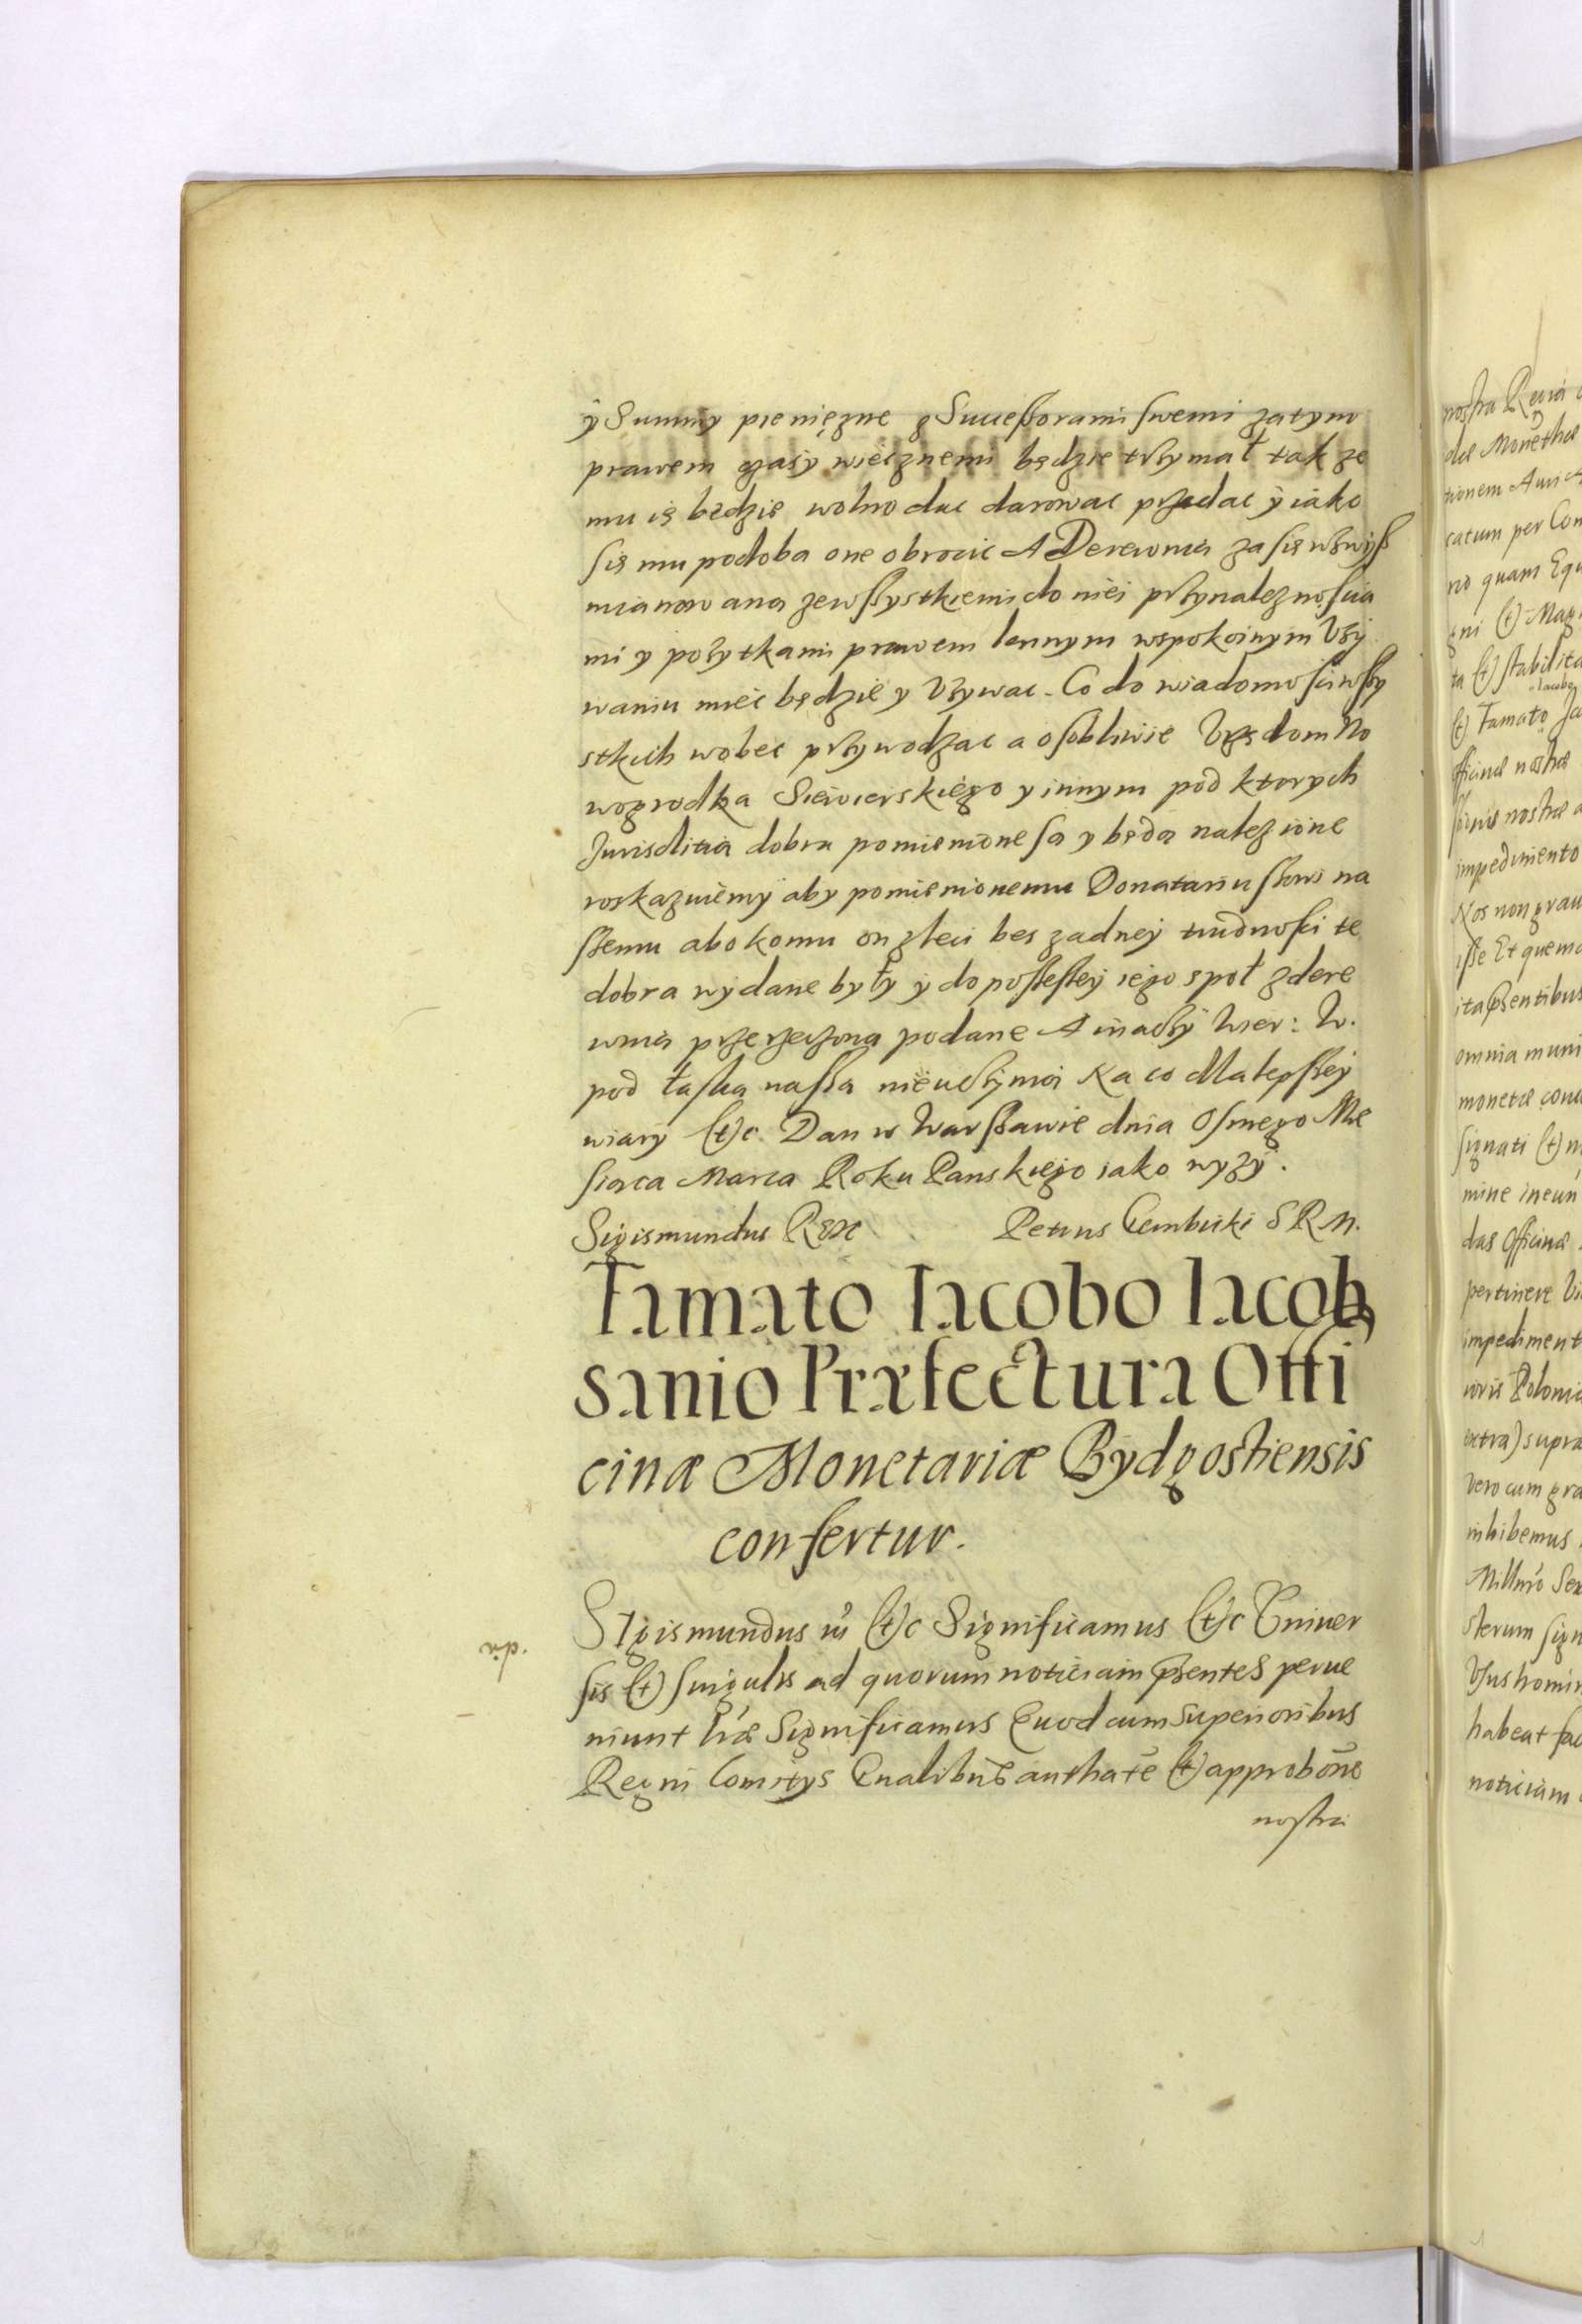 ÿ Summy pieniężne z Successorami swemi zatym
prawem czasÿ wiecznemi będzie trzymał tak ze
mu ię będzie wolno dac darowac przedac ÿ iako
się mu podoba one obrocic A Derewnią zasię wzwysz
mianowaną zewszystkiemi do niei przynależnościa
mi y pożytkami prawem lennym wspokoinym Vżÿ
waniu miec będzie y Vżywac. Co do wiadomości wszy
stkich wobec przywodząc a osobliwie Vrzędom No
wogrodka Siewierskiego y innym pod ktorych
Jurisditią dobra pomienione są y będą należione
roskazuiemÿ aby pomienionemu Donatariuszowi na
szemu abo komu on zleci bes zadneÿ trudności te
dobra wydane były ÿ do possessieÿ iego społ z dere
wnią przerzeczoną podane A inaczÿ Wier: W.
pod łaską naszą nieuczÿnią Na co dla lepszeÿ
wiary (et)c. Dan w Warszawie dnia Osmego Mie
siąca Marca Roku Panskiego iako wyzÿ.
Sigismundus Rex Petrus Gembicki S R M.
Tamato Iacobo Iacob
sanio Præfectura Offi
cinæ Monetariæ Bydgostiensis
confertur.
.dn.
SIgismundus iii (et)c Significamus (et)c Vniuer
sis (et) singulis ad quorum noticiam pñtes perue
niunt lræ Significamus Quod cum superioribus
Regni Comitÿs Gñalibus authatē (et) approbōne
nostra
nostra Regia
dæ Monethæ
tionem Auri A
catum per Con
no quam Equ
gni (et) Mag
ta (et) stabilita
Iacobo
(et) Tamato Ja
fficinæ nostræ
nostræ a
impedimento
Nos non grau
isse Et quema
ita pñsentibus
omnia muni
monetæ cond
signati (et) m
mine ineun
das Officinæ
pertinere Vi
impediment
ioris Poloniæ
extra) supra
Vero cum gra
inhibemus
sterum sign
Vsus homin
habeat fac
noticiam